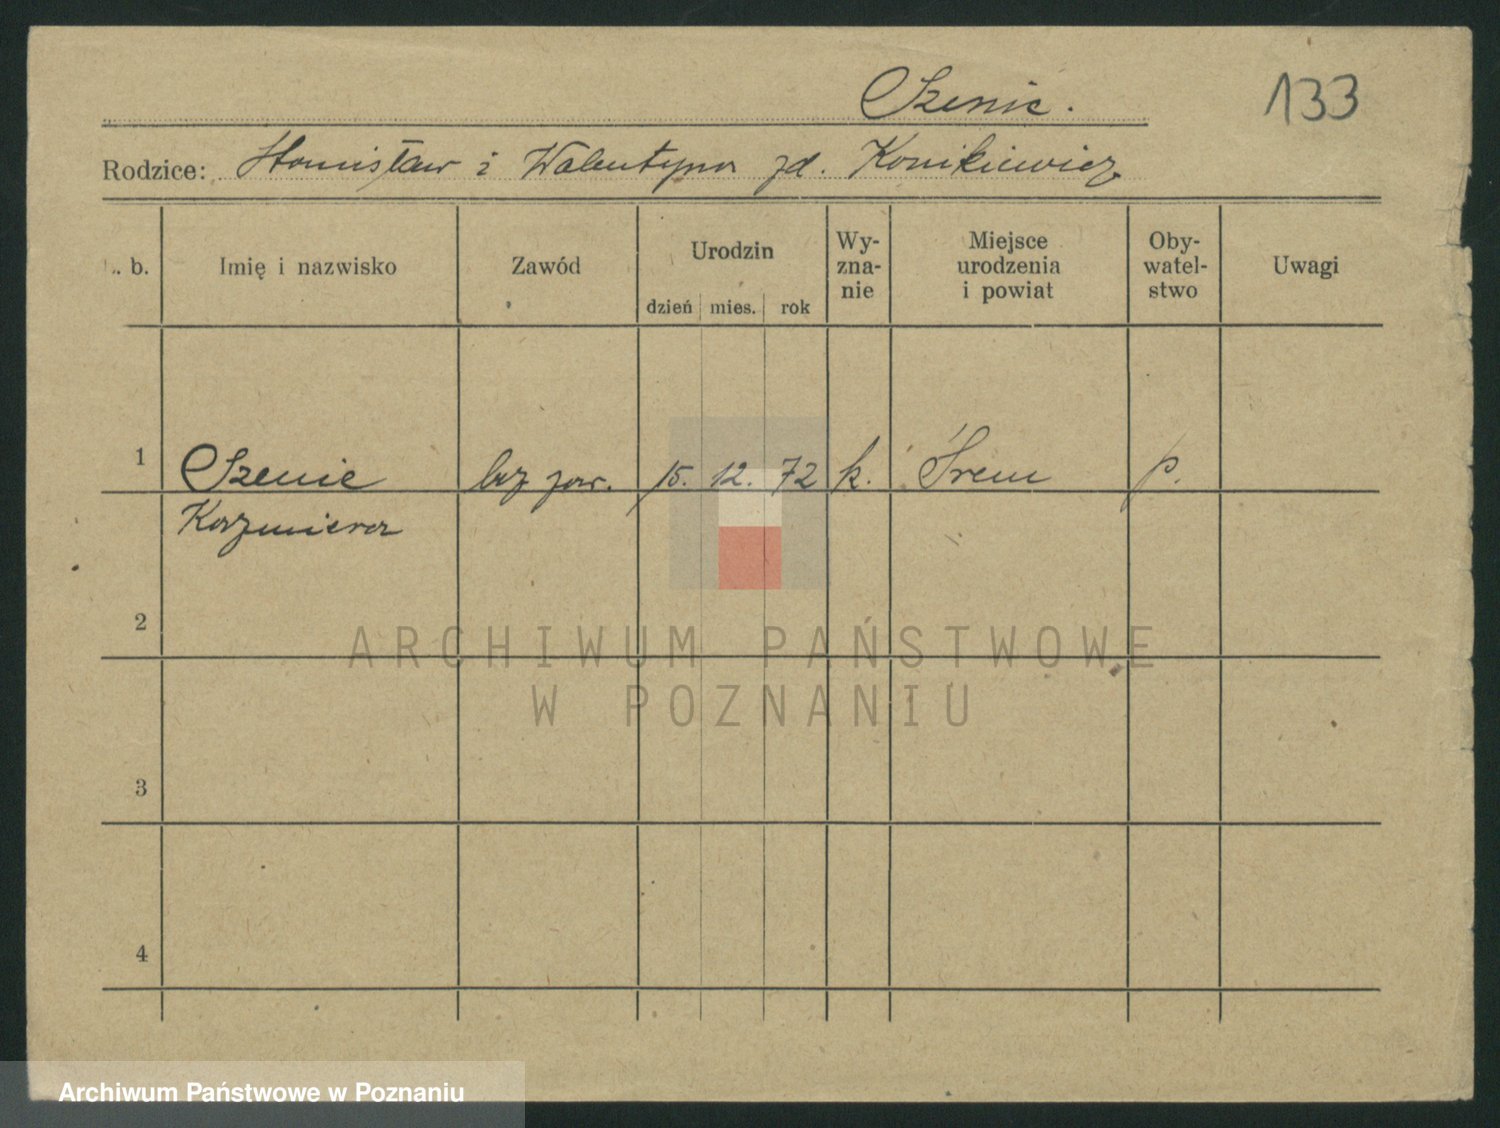 Szenic.
133
Rodzice: Stanisław i Walentyna zd. Konikiewicz
. b.
Imię i nazwisko
Zawód
Urodzin
dzień mies. rok
Wy-
zna-
nie
Miejsce
urodzenia
i powiat
Oby-
watel-
stwo
Uwagi
1 Szenic bez zaw. 15. 12. 72 k. Śrem p.
Kazmiera
2
3
4
ARCHIWUM PAŃSTWOWE
W POZNANIU
Archiwum Państwowe w Poznaniu